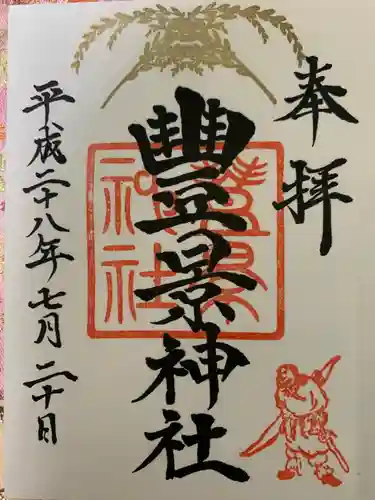 奉拝
豊景神社
豊景神社
平成二十八年七月二十日